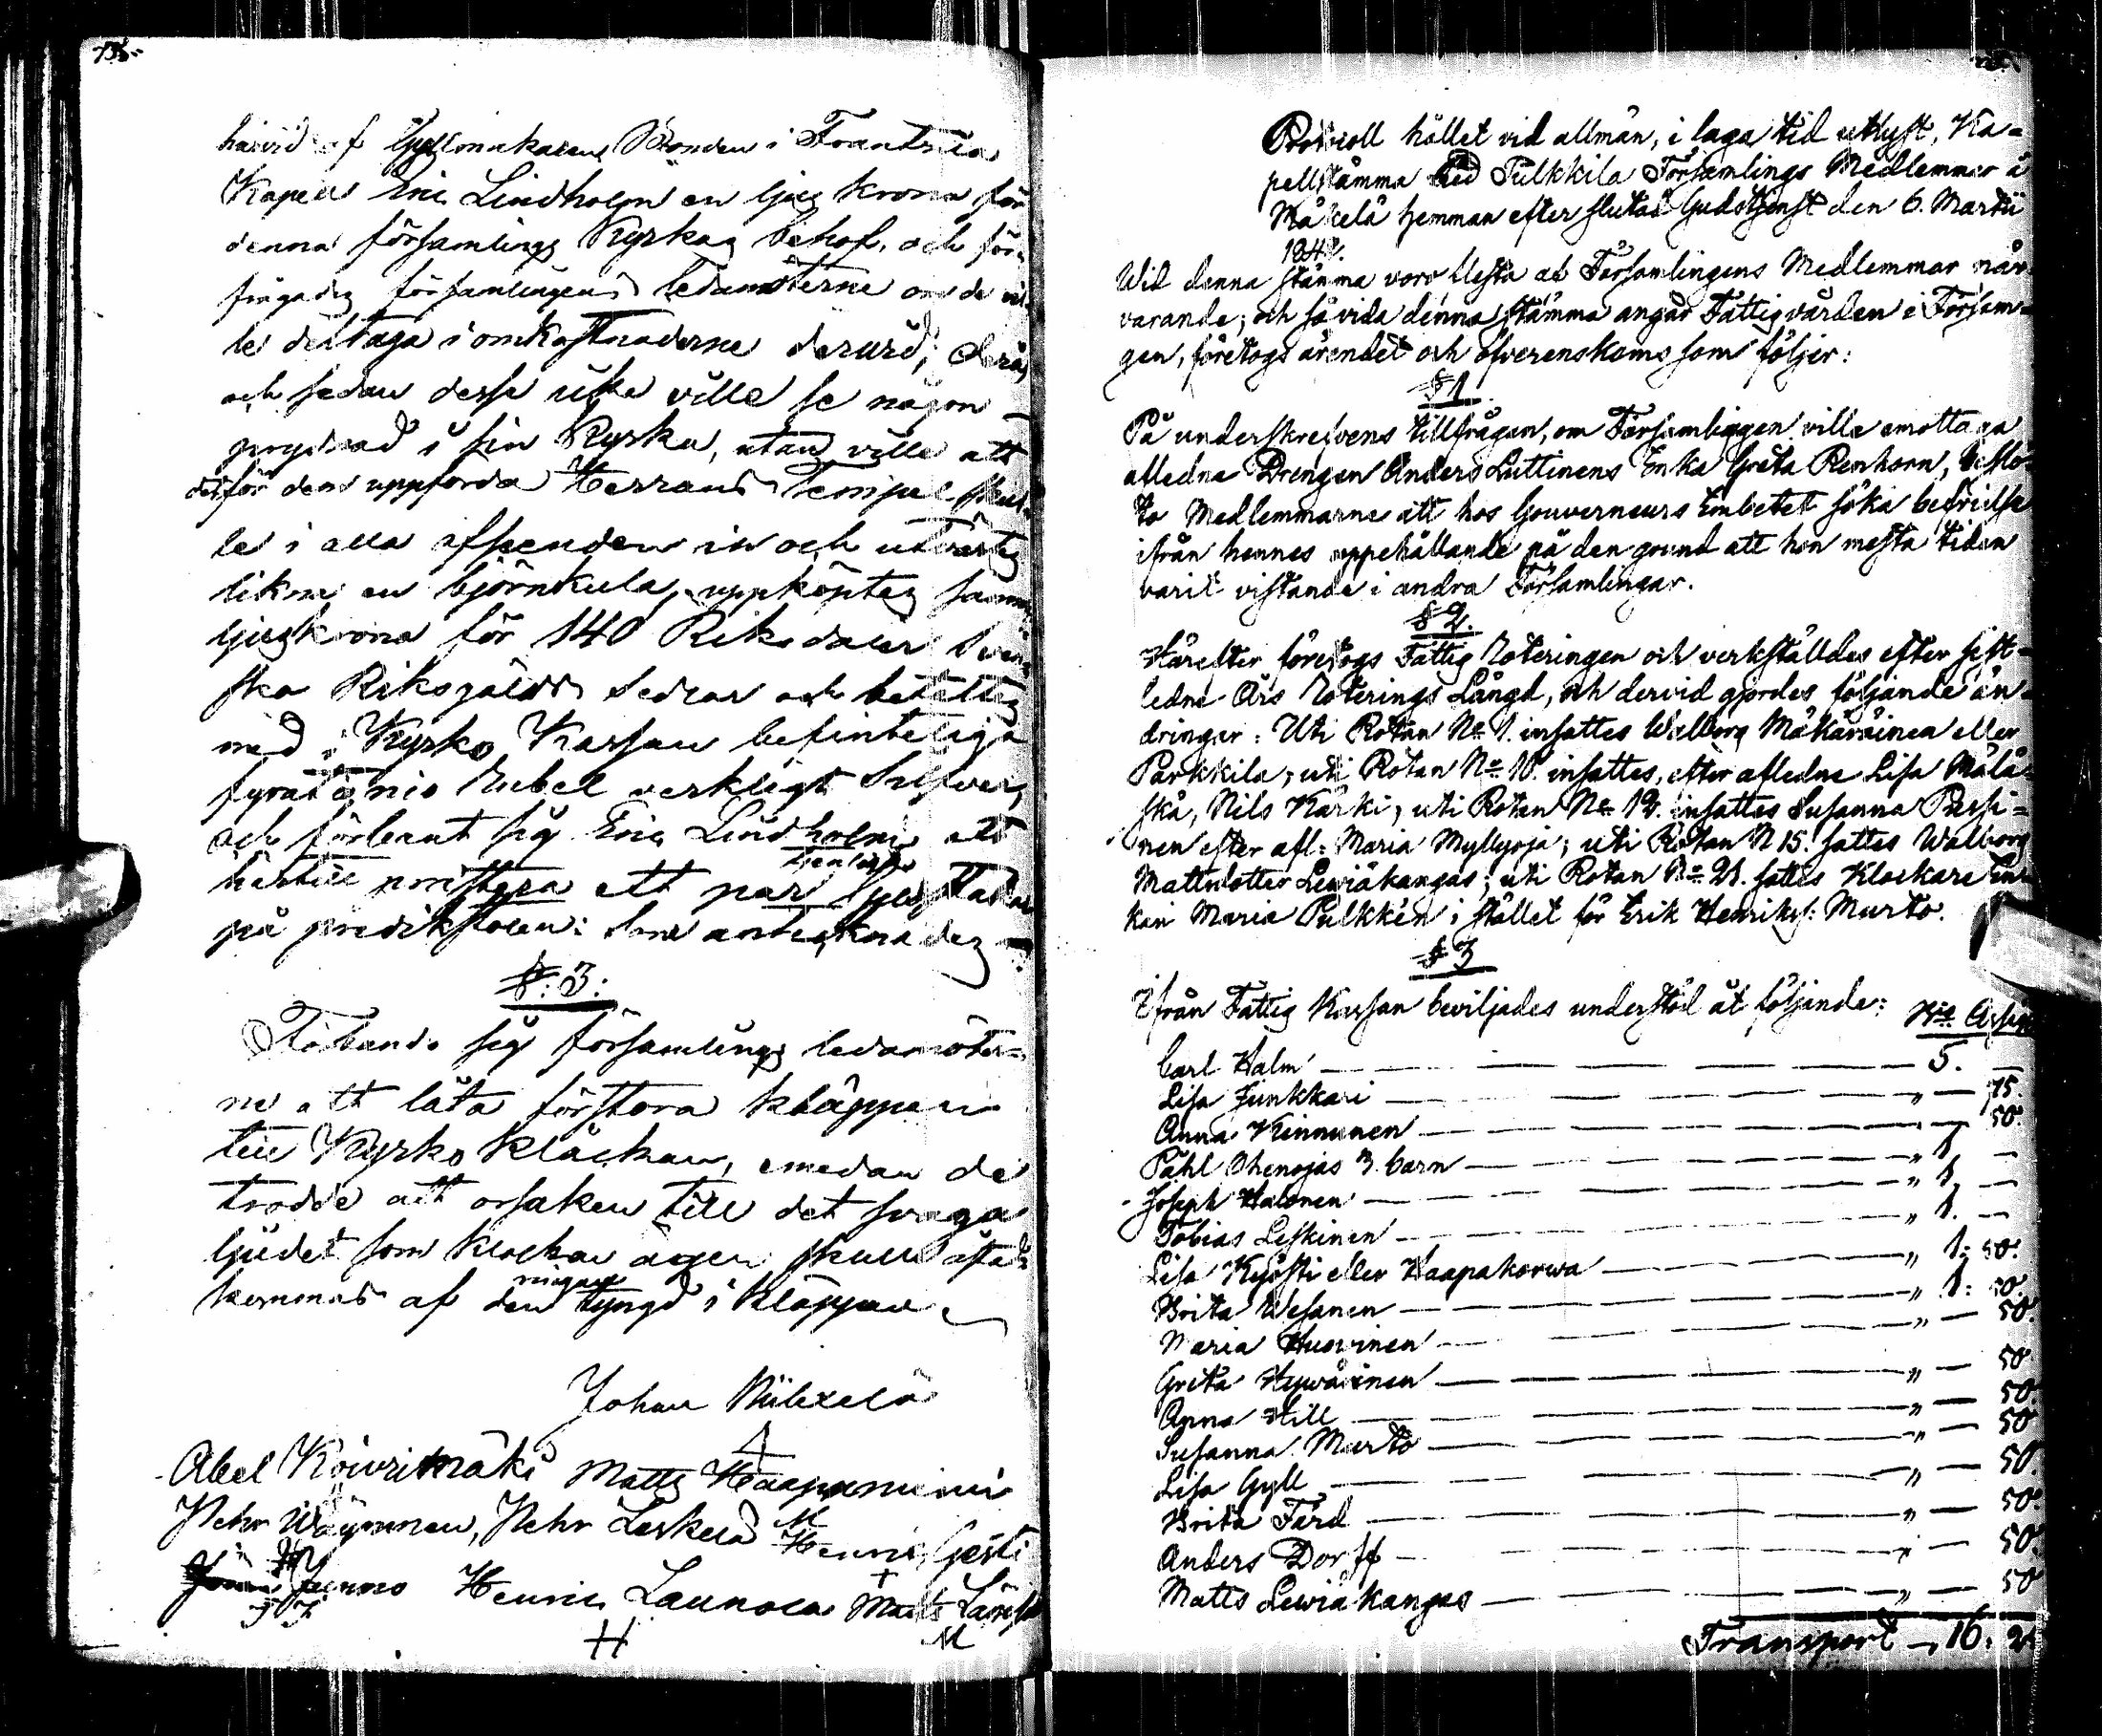 härvid af Gyllmakaren Bonden i Frantsila
Kapell Eric Lindholm en ljus krona för
denna församlings Kyrkas behof, och för-
frågades församlingens ledamöterne om de vil
le deltaga i omkostnaderne derurid;
och sedan desse icke ville se någon
prydnad i sin Kyrka, utan ville att
det för dem uppförda Herrans Tempel skul-
le i alla afseenden in och utvärtes
likna en björnkula, uppköptes samma
ljuskrona för 140 Riksdaler Sven
ska Riksgälds Sedlar och betaltes
med i Kyrko Kassan befinteliga
fyratio nio Rubel verkligt Silfver,
och förbant sig Eric Lindholm att
härtill prestera ett par tjenliga ljusstakar
på predikstolen: Som antecknades
§: 3:
Förbundo sig församlings ledamöter-
ne att låta förstora kläppen
till Kyrko Kläckan, emedan de
trodde att orsaken till det svaga
ljudet som klockan äger skulle åstad
kommas af den ringare tyngd i kläppen
Johan
Abel Koivumäki Matts Haapaniemi
Pehr Väyrynen, Pehr Leskelä Henric Gästi
Junno Henric Launola Matts
H M
Protocoll hållet vid allmän, i laga tid utlyst, Ka-
pellstämma med Pulkkila Församlings Medlemmar å
Mäkelä hemman efter slutad Gudstjenst den 6. Martii
184
Wid denna stämma voro flesta af Församlingens Medlemmar när-
varande; och såvida denna stämma angår Fattigvården i Försam-
gen, företogs ärendet och öfverenskoms som följer:
§ 1.
På underskrefvens tillfrågan, om Församlingen ville emottaga
afledne Drengen Anders Luttinens Enka Greta Renhorn, beslö-
to Medlemmarne att hos Gouverneurs Embetet söka befrielse
ifrån hennes uppehållande på den grund att hon mesta tiden
varit vistande i andra Församlingar.
§ 2.
Härefter företogs Fattig Roteringen och verkställdes efter sist-
ledne Års Roterings Längd, och dervid gjordes följande än-
dringar: Uti Rotan No 1. insattes Walborg Mäkäräinen eller
Parkkila; uti Rotan No 10. insattes, efter afledne Lisa Mälä-
skä, Nils Kärki; uti Rotan No 12. insattes Susanna Pessi=
nen efter afl: Maria Myllyoja; uti Rotan N 15. sattes Walborg
Mattsdotter Lewiäkangas; uti Rotan No 21. sattes Klockare En-
kan Maria Pulkkén i stället för Erik Henrikss: Murto.
§ 3
Ifrån Fattig Kassan beviljades understöd åt följande:
Carl Halm — 5. —
Lisa Junkkari — „ — 75.
Anna Kinnunen — 50.
Påhl Ohenojas 3. barn — „ 1, —
Joseph Halonen — „ 1, —
Tobias Leskinen — „ 1. —
Lisa Kyösti eller Haapakorwa — „ 1: 50.
Brita Wesanen — „ 1: 50.
Maria Huovinen — „ — 50.
Greta Hywärinen — „ — 50.
Anna Hill — „ — 50.
Susanna Murto — „ — 50
Lisa Gyll — „ — 50.
Brita Färd — „ — 50.
Anders Dorff — „ — 50.
Matts Lewiäkangas — „ — 50
Transport — 16. 2